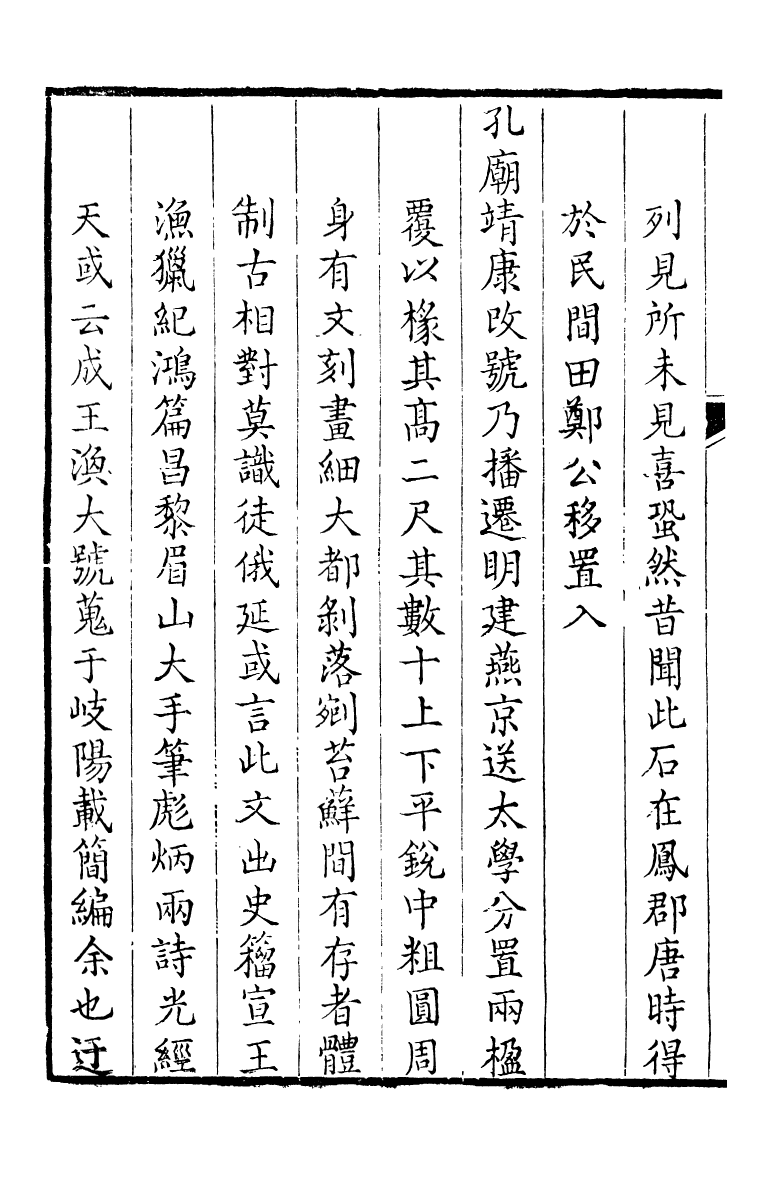 列見所未見喜蛩然昔聞此石在鳳郡唐時得
於民間田鄭公移置入
孔廟靖康改號乃播遷明建燕京送太學分置兩楹
覆以椽其髙二尺其數十上下平銳中粗圓周
身有文刻畫細大都剝落剜苔蘚間有存者體
制古相對莫識徒俄延或言此文出史籀宣王
漁獵紀鴻篇昌黎眉山大手筆彪炳兩詩光經
天或云成王渙大號蒐于岐陽載簡編余也迂